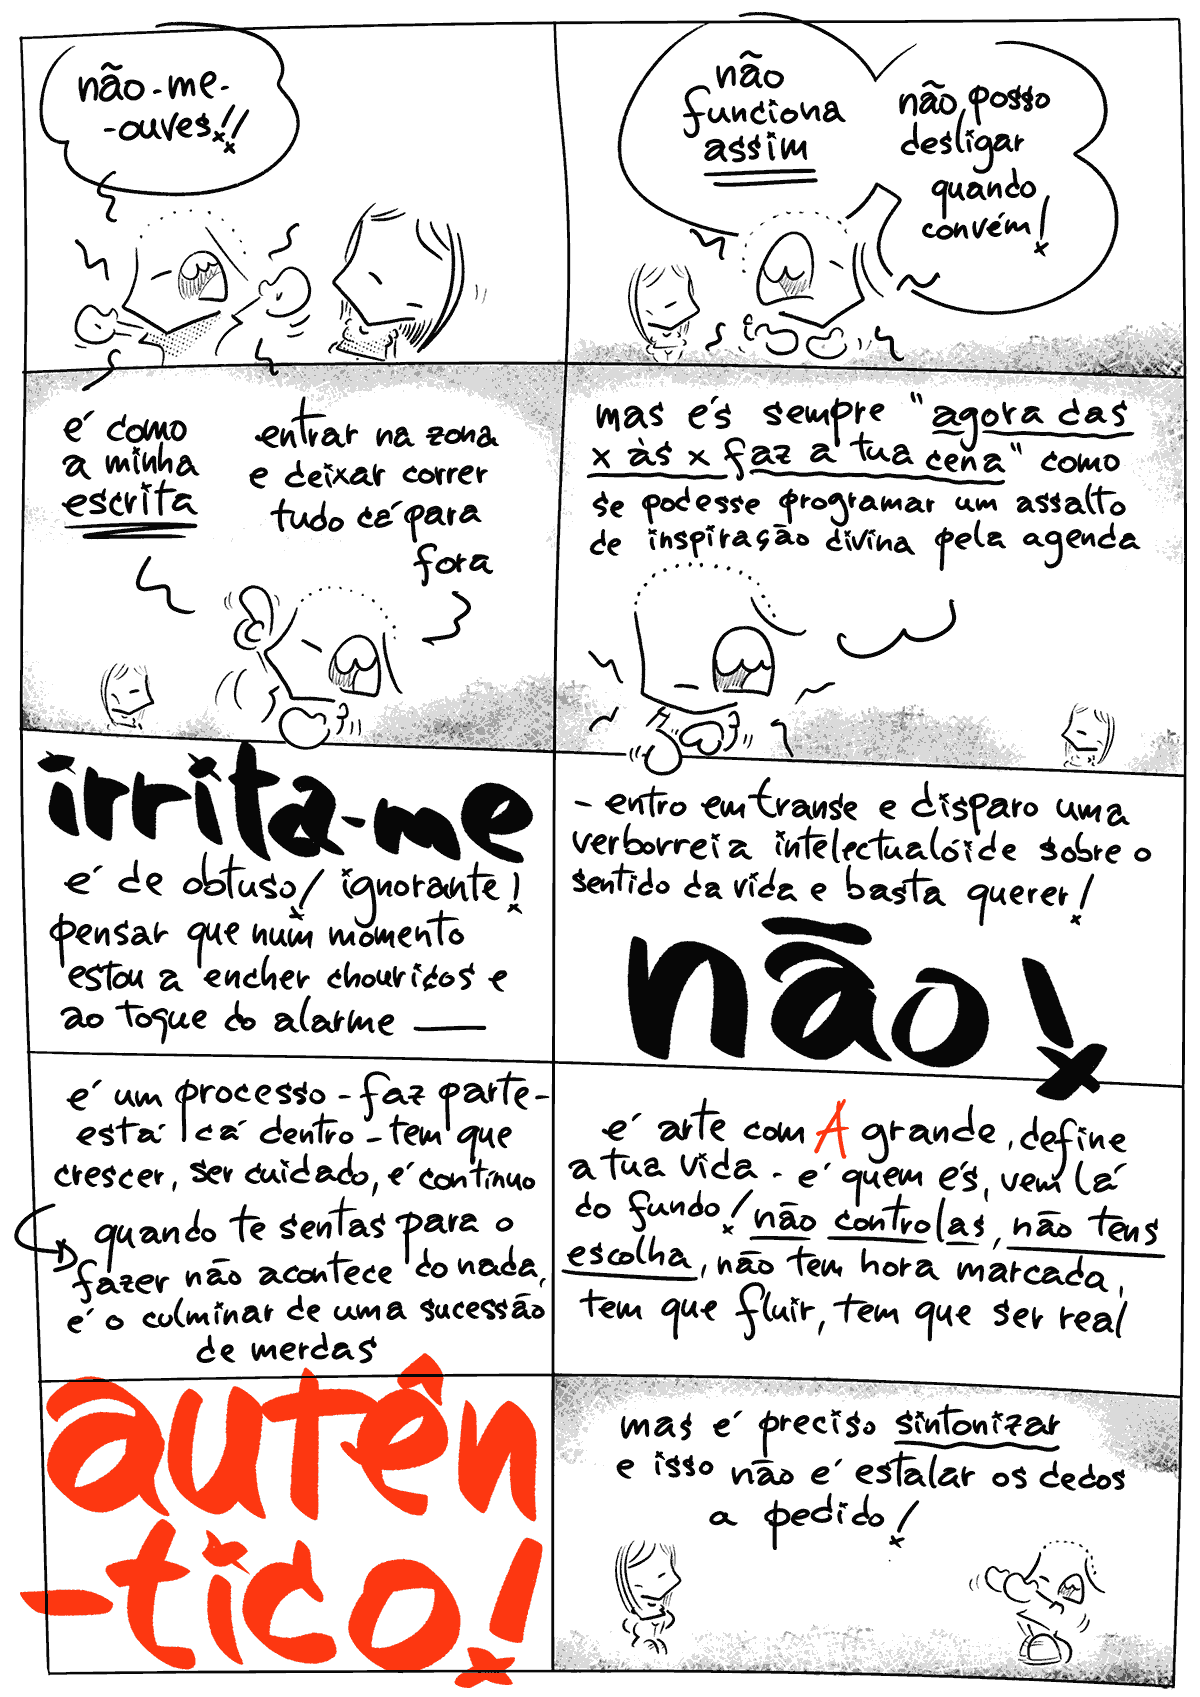 não-me-
-ouves!!
não
funciona
assim
não posso
desligar
quando
convém!
é como
a minha
escrita
entrar na zona
e deixar correr
tudo cá para
fora
mas és sempre "agora das
x às x faz a tua cena" como
se podesse programar um assalto
de inspiração divina pela agenda
irrita-me
é de obtuso! ignorante!
pensar que num momento
estou a encher chouriços e
ao toque do alarme —
- entro em transe e disparo uma
verborreia intelectualóide sobre o
sentido da vida e basta querer!
não!
é um processo - faz parte -
está cá dentro - tem que
crescer, ser cuidado, é contínuo
quando te sentas para o
fazer não acontece do nada,
é o culminar de uma sucessão
de merdas
é arte com A grande, define
a tua vida - é quem és, vem lá
do fundo! não controlas, não tens
escolha, não tem hora marcada,
tem que fluir, tem que ser real
autên
-tico!
mas é preciso sintonizar
e isso não é estalar os dedos
a pedido!